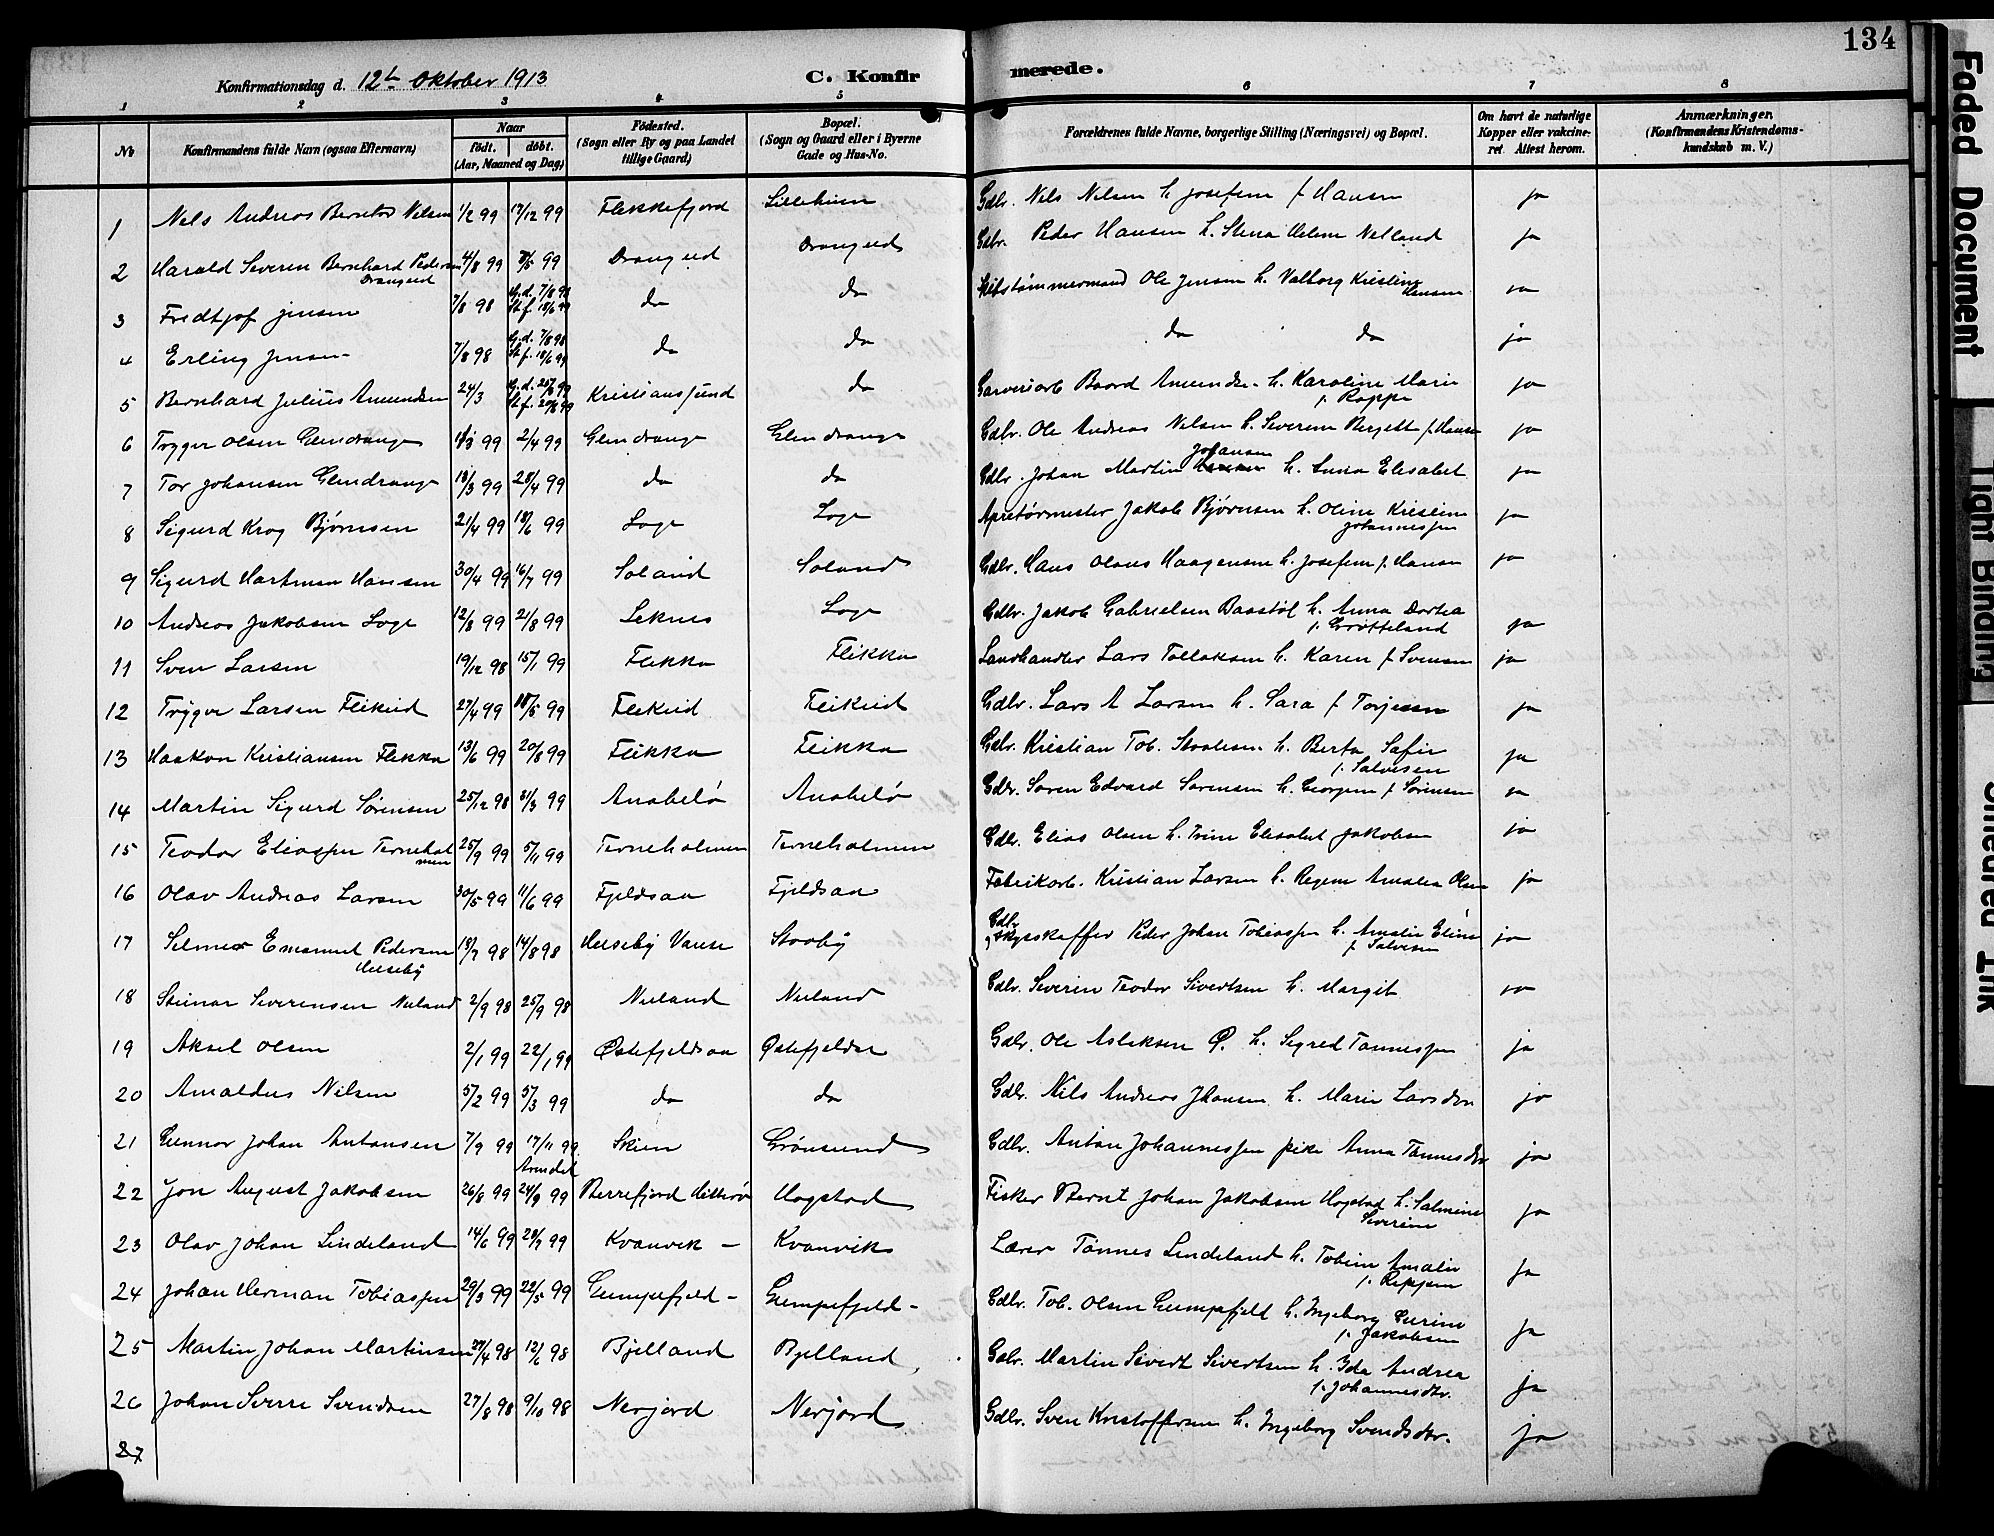 134
Konfirmationsdag d. 12te Oktober 1913 C. Konfirmerede.
1 2 3 4 5 6 7 8
No Konfirmandens fulde Navn (ogsaa Efternavn) Naar født. døbt. (Aar, Maaned og Dag) Fødested. (Sogn eller By og paa Landet tillige Gaard) Bopæl. (Sogn og Gaard eller i Byerne Gade og Hus-No. Forældrenes fulde Navne, borgerlige Stilling (Næringsvei) og Bopæl. Om havt de naturlige Kopper eller vakcineret. Attest herom. Anmærkninger. (Konfirmandens Kristendomskundskab m. V.)
1 Nels Andreas Berntod Nilsen 1/2 99 17/12 99 Flekkefjord Gdbr. Nels Nelsen h. Josefine f Hansen ja
2 Harald Severen Bernhard Pedersen Drangeid 4/3 99 99 Drangeid Drangeid Gdbr. Peder Hansen h. Stina Helene ja
3 Fredtjof Jensen 7/8 98 H.d. 7/8 98 St.f. 18/6 99 da da Skibstømmermand Ole Jensen h. Valborg Kristine Hansen ja
4 Erling Jensen 7/8 98 H.d. 7/8 98 St.f. 18/6 99 da da da da ja
5 Bernhard Julius Amundsen 24/3 Kristianssund da Garveriarb Baard Amundsen h. Karoline Marie f. Roppe ja
6 Trygve Olsen Glendrange 99 2/4 99 Glendrange Glendrange Gdbr. Ole Andreas Nelsen h. Severine Bergett f Hansen ja
7 Tor Johansen Glendrange 18/3 99 28/4 99 da da Gdbr. Johan Martin Johansen h. Anna Elisabet ja
8 Sigurd Krog Bjørnsen 21/4 99 18/6 99 Loge Loge Apretørmester Jakob Bjørnsen h. Oline Kristine Johannessen ja
9 Sigurd Hartman Hansen 30/4 99 16/7 99 Soland Soland Gdbr. Hans Olaus Haagensen h. Josefine f. Hansen ja
10 Andreas Jakobsen Loge 12/8 99 21/8 99 Leknes Loge Gdbr. Jakob Gabrielsen Baastøl h. Anna Dortea f. Grøtteland ja
11 Sven Larsen 19/12 98 15/1 99 Fleikka Fleikka Landhandler Lars Tollaksen h. Karen f Svensen ja
12 Trygve Larsen Fleikeid 27/4 99 18/5 99 Fleikeid Fleikeid Gdbr. Lars A Larsen h. Sara f Torjesen ja
13 Haakon Kristiansen Flekka 13/6 99 20/8 99 Fleikka Fleikka Gdbr. Kristian Tob. Staalesen h. Berta Sofie f. Salvesen ja
14 Martin Sigurd Sørensen 25/12 98 21/3 99 Anabelø Anabelø Gdbr. Søren Edvard Sørensen h. Georgine f Sørensen ja
15 Teodor Eliassen Terneholmen 25/9 99 5/11 99 Terneholmen Terneholmen Gdbr. Elias Olsen h. Trine Elisabet Jakobsen ja
16 Olav Andreas Larsen 30/5 99 11/6 99 Fjeldsaa Fjeldsaa Fabrikarb. Kristian Larsen h. Regine Amalia Olsen ja
17 Selmer Emanuel Pedersen Huseby 13/7 98 14/8 98 Huseby Vanse Stooby Gdbr. skysskaffer Peder Johan Tobiassen h. Amalie Eline f Salvesen ja
18 Steinar Severensen Nuland 2/9 98 25/9 98 Nuland Nuland Gdbr. Severin Teodor Sivertsen h. Margit ja
19 Aksel Olsen 2/1 99 22/1 99 Østefjeldsaa Østefjeldsa Gdbr. Ole Aslaksen Ø. h. Sigred Tønnessen ja
20 Arnaldus Nilsen 5/2 99 5/3 99 da da Gdbr. Nils Andreas Jhansen h. Marie Larsdtr ja
21 Gunnar Johan Antonsen 7/9 99 17/11 99 Arendal Skien Grønsund Gdbr. Anton Johannessen pike Anna Tønnesdtr ja
22 Jon August Jakobsen 26/8 99 24/9 99 Berrefjord Hitterø Hogstad Fisker Bernt Johan Jakobsen Hogstad h. Salmine Severine ja
23 Olav Johan Lindeland 14/6 99 28/7 99 Kvanvik - Kvanvik Lærer Tønnes Lindeland h. Tobine Amalie f. Reppen ja
24 Johan Herman Tobiassen 29/3 99 22/5 99 Gumpefjeld - Gumpefjeld - Gdbr. Tob. Olsen Gumpefjeld h. Ingeborg Gurine f. Jakobsen ja
25 Martin Johan Martinsen 29/4 98 12/6 98 Bjelland Bjelland Gdbr. Martin Sivert Sivertsen h. Ida Andrea f. Johannesdtr. ja
26 Johan Sverre Svendsen 27/8 98 9/10 98 Nerjord Nerjord Gdbr. Sven Kristoffersen h. Ingeborg Svendsdtr. ja
27
Faded Document
Tight Binding
Smeared Ink